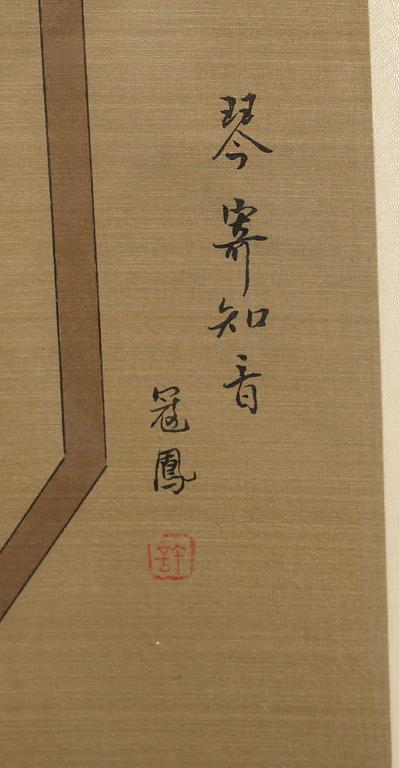 琴寄知音
冠鳳
許